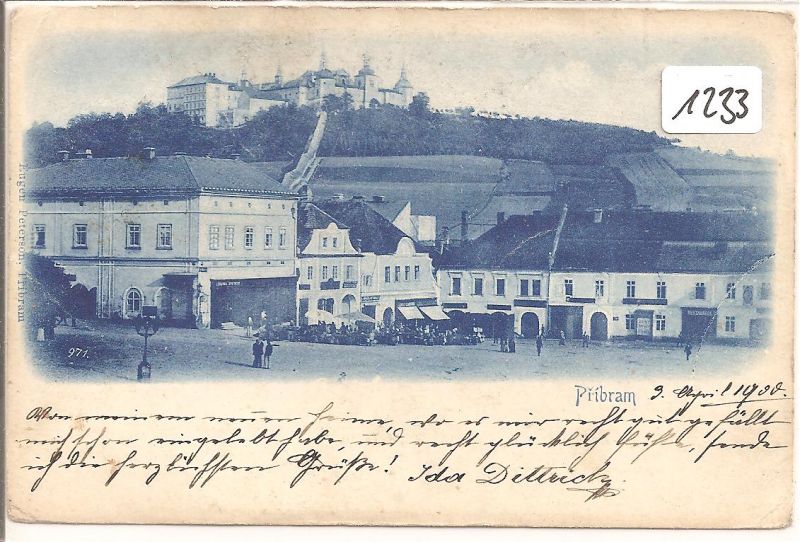 1233
Eugen Peterson, Příbram
971.
Příbram 9. April 1900.
Von meinem neuen Heime, wo es mir recht gut gefällt
mich schon eingelebt habe, und recht glücklich fühle, sende
ich die herzlichsten Grüße! Ida Dittrich